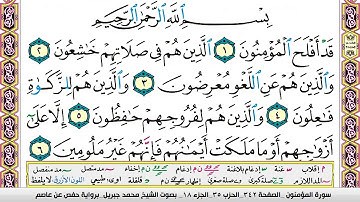 بِسْمِ اللَّهِ الرَّحْمَٰنِ الرَّحِيمِ
قَدْ أَفْلَحَ الْمُؤْمِنُونَ ١ الَّذِينَ هُمْ فِي صَلَاتِهِمْ خَاشِعُونَ ٢
وَالَّذِينَ هُمْ عَنِ اللَّغْوِ مُعْرِضُونَ ٣ وَالَّذِينَ هُمْ لِلزَّكَوٰةِ
فَاعِلُونَ ٤ وَالَّذِينَ هُمْ لِفُرُوجِهِمْ حَافِظُونَ ٥ إِلَّا عَلَىٰ
أَزْوَاجِهِمْ أَوْ مَا مَلَكَتْ أَيْمَانُهُمْ فَإِنَّهُمْ غَيْرُ مَلُومِينَ ٦
سورة المؤمنون. الصفحة ٣٤٢. الحزب ٣٥. الجزء ١٨. بصوت الشيخ محمد جبريل. برواية حفص عن عاصم